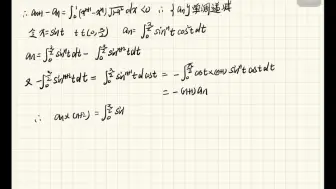 ∴ aₙ₊₁ - aₙ = ∫₀¹(xⁿ⁺¹-xⁿ)√(1-x²) dx < 0 ∴ {aₙ}单调递减
令 x=sint t∈(0, π/2) aₙ = ∫₀^(π/2) sinⁿt cos²t dt
aₙ = ∫₀^(π/2) sinⁿt dt - ∫₀^(π/2) sinⁿ⁺²t dt
又 -∫₀^(π/2) sinⁿ⁺²t dt = ∫₀^(π/2) sinⁿ⁺¹t dcost = -∫₀^(π/2) cost×(n+1) sinⁿt cost dt
= -(n+1)aₙ
∴ aₙ×(n+2) = ∫₀^(π/2) sin